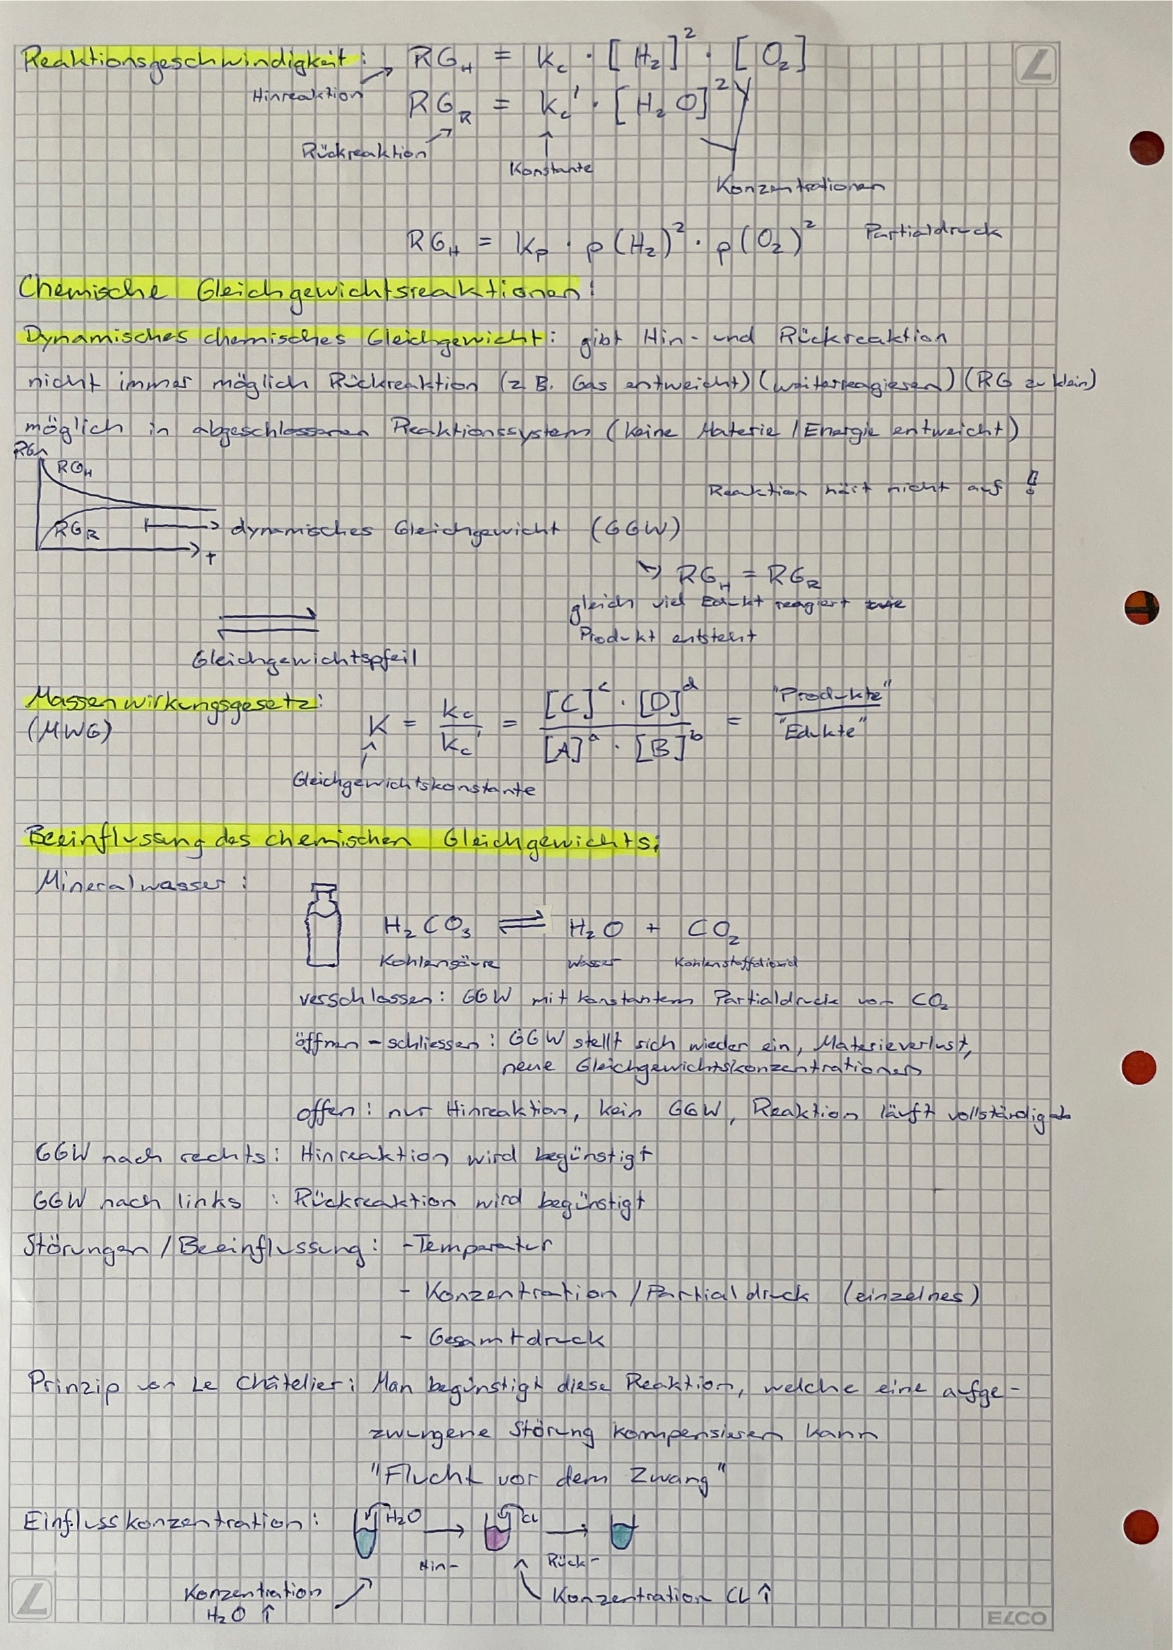 Reaktionsgeschwindigkeit: RG_H = k_c · [H₂]² · [O₂]
Hinreaktion
RG_R = k_c' · [H₂O]²
Rückreaktion
Konstante
Konzentrationen
RG_H = k_p · p(H₂)² · p(O₂)² Partialdruck
Chemische Gleichgewichtsreaktionen:
Dynamisches chemisches Gleichgewicht: gibt Hin- und Rückreaktion
nicht immer möglich Rückreaktion (z.B. Gas entweicht) (weiterreagieren) (RG zu klein)
möglich in abgeschlossenen Reaktionssystem (keine Materie/Energie entweicht)
RG
RG_H
Reaktion hört nicht auf !
RG_R dynamisches Gleichgewicht (GGW)
t
RG_H = RG_R
gleich viel Edukt reagiert wie
Produkt entsteht
Gleichgewichtspfeil
Massenwirkungsgesetz:
(MWG) K = k_c / k_c' = [C]^c · [D]^d / [A]^a · [B]^b = "Produkte" / "Edukte"
Gleichgewichtskonstante
Beeinflussung des chemischen Gleichgewichts:
Mineralwasser:
H₂CO₃ ⇌ H₂O + CO₂
Kohlensäure Wasser Kohlenstoffdioxid
verschlossen: GGW mit konstantem Partialdruck von CO₂
öffnen - schliessen: GGW stellt sich wieder ein, Materieverlust,
neue Gleichgewichtskonzentrationen
offen: nur Hinreaktion, kein GGW, Reaktion läuft vollständig ab
GGW nach rechts: Hinreaktion wird begünstigt
GGW nach links : Rückreaktion wird begünstigt
Störungen/Beeinflussung: - Temperatur
- Konzentration/Partialdruck (einzelnes)
- Gesamtdruck
Prinzip von Le Châtelier: Man begünstigt diese Reaktion, welche eine aufge-
zwungene Störung kompensieren kann
"Flucht vor dem Zwang"
Einflusskonzentration: H₂O → CL →
Hin- Rück-
Konzentration
H₂O ↑
Konzentration CL ↑
L
ELCO